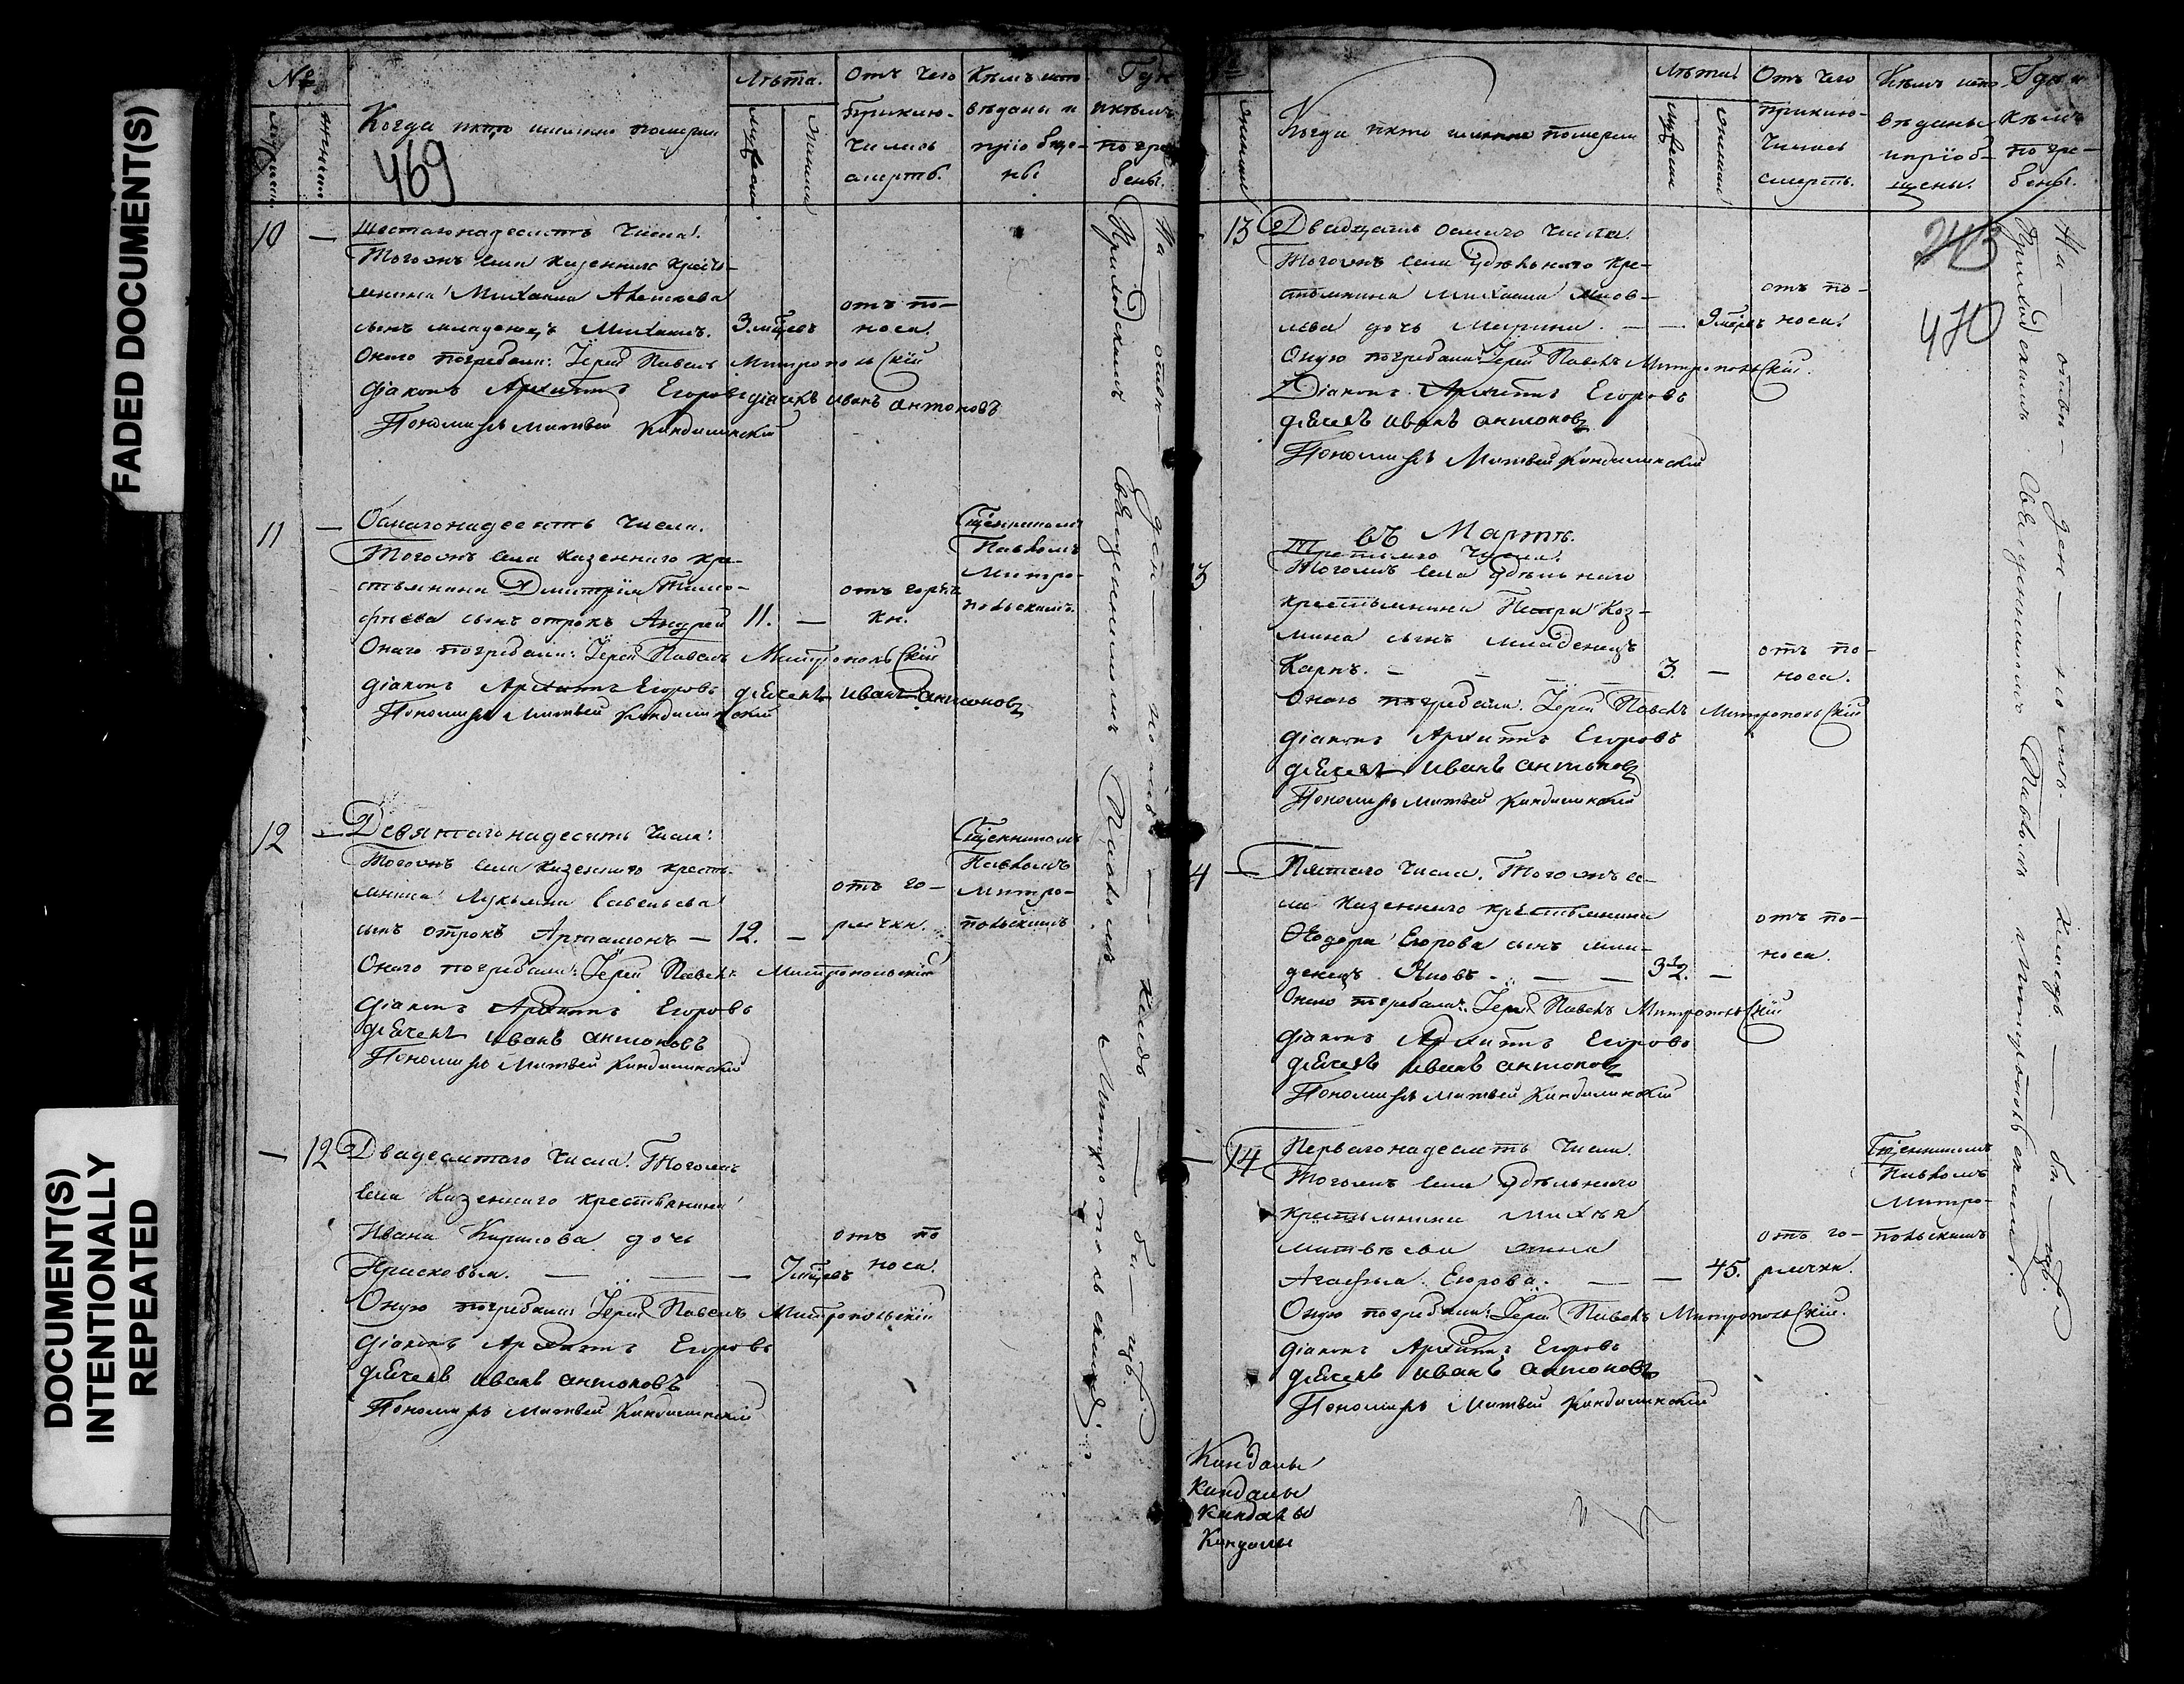 FADED DOCUMENT(S)
DOCUMENT(S)
INTENTIONALLY
REPEATED
№
Лѣта.
Отъ чего приключилась смерть.
Кѣмъ исповѣданы и пріобщены
Когда и кто именно померли
469
10 —
Шестагонадесять числа.
Тогожъ села казеннаго крестьянина Михаила
сынъ младенецъ Михаилъ. 3. мѣсяцевъ
отъ поноса.
Онаго погребали: Іерей Павелъ Митропольскій
діаконъ Архиппъ Егоровъ дьячекъ иванъ антоновъ
Пономарь Матвей Кандалинскій
11 —
Осмагонадесять числа.
Тогожъ села казеннаго крестьянина Дмитрія Тимофѣева сынъ отрокъ Андрей 11. —
отъ горячки.
Священникомъ
Павломъ
Митропольскимъ
Онаго погребали: Іерей Павелъ Митропольскій
діаконъ Архиппъ Егоровъ дьячекъ иванъ антоновъ
Пономарь Матвей Кандалинскій
12 —
Девятагонадесять числа.
Тогожъ села казеннаго крестьянина Лукьяна Савельева
сынъ отрокъ Артамонъ — 12. —
отъ горячки.
Священникомъ
Павломъ
Митропольскимъ
Онаго погребали: Іерей Павелъ Митропольскій
діаконъ Архиппъ Егоровъ
дьячекъ иванъ антоновъ
Пономарь Матвей Кандалинскій
— 12
Двадесятаго числа. Тогожъ
села казеннаго крестьянина
Ивана Кирилова дочь
Прасковья. — — — 7 мѣсяцевъ
отъ поноса.
Оную погребали: Іерей Павелъ Митропольскій
діаконъ Архиппъ Егоровъ
дьячекъ иванъ антоновъ
Пономарь Матвей Кандалинскій
На отве— ден— номъ — кладбищѣ
Приходскимъ Священникомъ Павломъ Митропольскимъ.
Когда и кто именно померли
Лѣта.
Отъ чего
приключилась
смерть.
Кѣмъ исповѣданы
и пріобщены.
Гдѣ и
кѣмъ
погребены.
243
470
13
Двадцать осмаго числа.
Тогожъ села удѣльнаго крестьянина Михаила Яковлева дочь Марина. — — 9 мѣсяцевъ
отъ поноса.
Оную погребали: Іерей Павелъ Митропольскій.
Діаконъ Архиппъ Егоровъ
дьячекъ иванъ антоновъ
Пономарь Матвей Кандалинскій
въ Мартѣ.
13
Третьяго числа.
Тогожъ села удѣльнаго
крестьянина Петра Козмина сынъ младенецъ
Карпъ. — — — 3. —
отъ поноса.
Онаго погребали: Іерей Павелъ Митропольскій
діаконъ Архиппъ Егоровъ
дьячекъ иванъ антоновъ
Пономарь Матвей Кандалинскій
14 —
Пятаго числа. Тогожъ села казеннаго крестьянина
Ѳедора Егорова сынъ младенецъ Яковъ. — — 3½. —
отъ поноса.
Онаго погребали: Іерей Павелъ Митропольскій
діаконъ Архиппъ Егоровъ
дьячекъ иванъ антоновъ
Пономарь Матвей Кандалинскій
— 14
Перваго надесять числа.
Тогожъ села удѣльнаго
крестьянина Михѣя
Матвѣева жена
Агафья Егорова. — — 45.
отъ горячки.
Священникомъ
Павломъ
Митропольскимъ
Оную погребали: Іерей Павелъ Митропольскій.
діаконъ Архиппъ Егоровъ
дьячекъ иванъ антоновъ
Пономарь Матвей Кандалинскій
На отве— ден— номъ — кладбищѣ
Приходскимъ Священникомъ Павломъ Митропольскимъ.
Кандалы
Кандалы
Кандалы
Кандалы